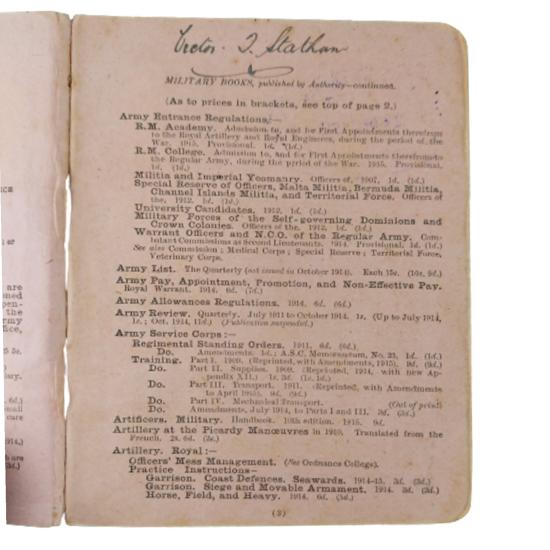 Victor. J. Stathan
MILITARY BOOKS, published by Authority—continued.
(As to prices in brackets, see top of page 2.)
Army Entrance Regulations:—
R.M. Academy. Admission to, and for First Appointments therefrom
to the Royal Artillery and Royal Engineers, during the period of the
War. 1915. Provisional. 1d. (1d.)
R.M. College. Admission to, and for First Appointments therefrom to
the Regular Army, during the period of the War. 1915. Provisional.
1d. (1d.)
Militia and Imperial Yeomanry. Officers of, 1907, 1d. (1d.)
Special Reserve of Officers, Malta Militia, Bermuda Militia,
Channel Islands Militia, and Territorial Force. Officers of
the, 1912. 1d. (1d.)
University Candidates. 1912. 1d. (1d.)
Military Forces of the Self-governing Dominions and
Crown Colonies. Officers of the. 1912. 1d. (1d.)
Warrant Officers and N.C.O. of the Regular Army. Com-
batant Commissions as Second Lieutenants. 1914. Provisional. 1d. (1d.)
See also Commission; Medical Corps; Special Reserve; Territorial Force,
Veterinary Corps.
Army List. The Quarterly (not issued in October 1914). Each 15s. (10s. 9d.)
Army Pay, Appointment, Promotion, and Non-Effective Pay.
Royal Warrant. 1914. 6d. (7d.)
Army Allowances Regulations. 1914. 6d. (6d.)
Army Review. Quarterly. July 1911 to October 1914. 1s. (Up to July 1914,
1s.; Oct. 1914, 11d.) (Publication suspended.)
Army Service Corps:—
Regimental Standing Orders. 1911. 6d. (6d.)
Do. Amendments. 1d.; A.S.C. Memorandum, No. 23, 1d. (1d.)
Training. Part I. 1909. (Reprinted, with Amendments, 1915). 9d. (9d.)
Do. Part II. Supplies. 1909. (Reprinted, 1914, with new Ap-
pendix XII.) 1s. 3d. (1s. 1d.)
Do. Part III. Transport. 1911. (Reprinted, with Amendments
to April 1915). 9d. (9d.)
Do. Part IV. Mechanical Transport. (Out of print)
Do. Amendments, July 1914, to Parts I and III. 3d. (3d.)
Artificers. Military. Handbook. 10th edition. 1915. 9d.
Artillery at the Picardy Manœuvres in 1910. Translated from the
French. 2s. 6d. (2s.)
Artillery. Royal:—
Officers' Mess Management. (See Ordnance College).
Practice Instructions—
Garrison. Coast Defences. Seawards. 1914-15. 3d. (3d.)
Garrison. Siege and Movable Armament. 1914. 3d. (3d.)
Horse, Field, and Heavy. 1914. 6d. (5d.)
(3)